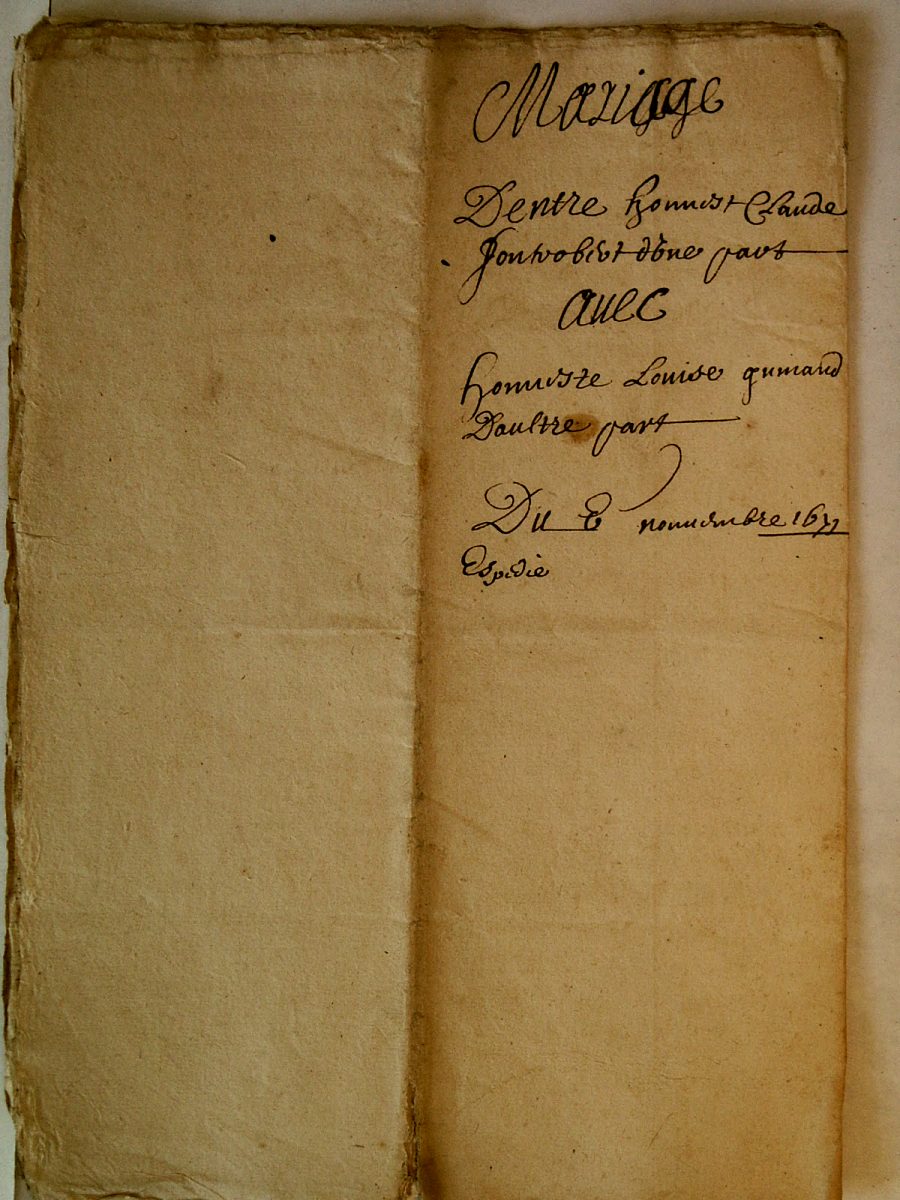 Mariage
Dentre honnest Claude
Jontrobert d'Vne part
auec
honneste Louise
Daultre part
Du 8 nouuembre 1671
Espedie